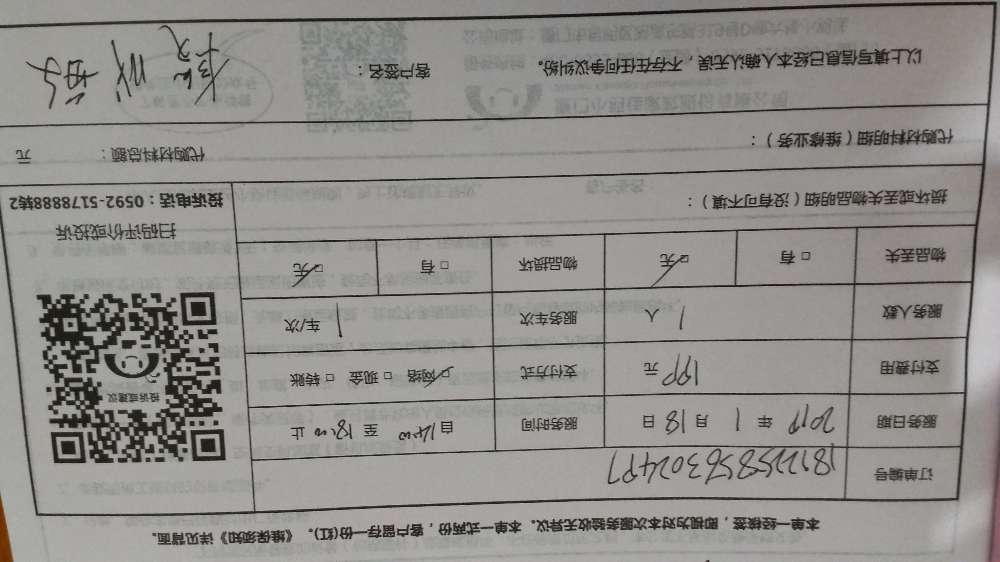 本单一经核签，即视为对本次服务验收无异议。本单一式两份，客户留存一份(红)。《维保须知》详见背面。
订单编号
服务日期 2019 年 1 月 18 日 服务时间 自 14:00 至 18:00 止
支付费用 199 元 支付方式 □ 网络 □ 现金 □ 转账
服务人数 1 人 服务车次 1 车/次
物品丢失 □ 有 □ 无 物品损坏 □ 有 □ 无
投诉或建议
扫码评价或投诉
投诉电话：0592-5178888转2
损坏或丢失物品明细（没有可不填）：
代购材料明细（维修业务）： 代购材料总额： 元
以上填写信息已经本人确认无误，不存在任何争议纠纷。 客户签名：